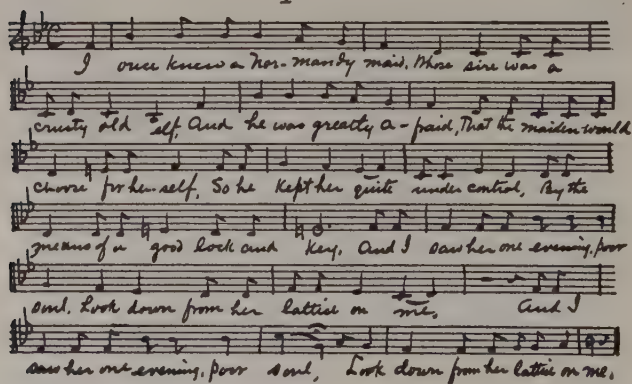 I once knew a Nor-mandy maid, Whose sire was a
crusty old elf, And he was greatly a-fraid, That the maiden would
choose for her-self, So he kept her quite under control, By the
means of a good lock and key, And I saw her one evening, poor
soul, Look down from her lattice on me, And I
saw her one evening, poor soul, Look down from her lattice on me.